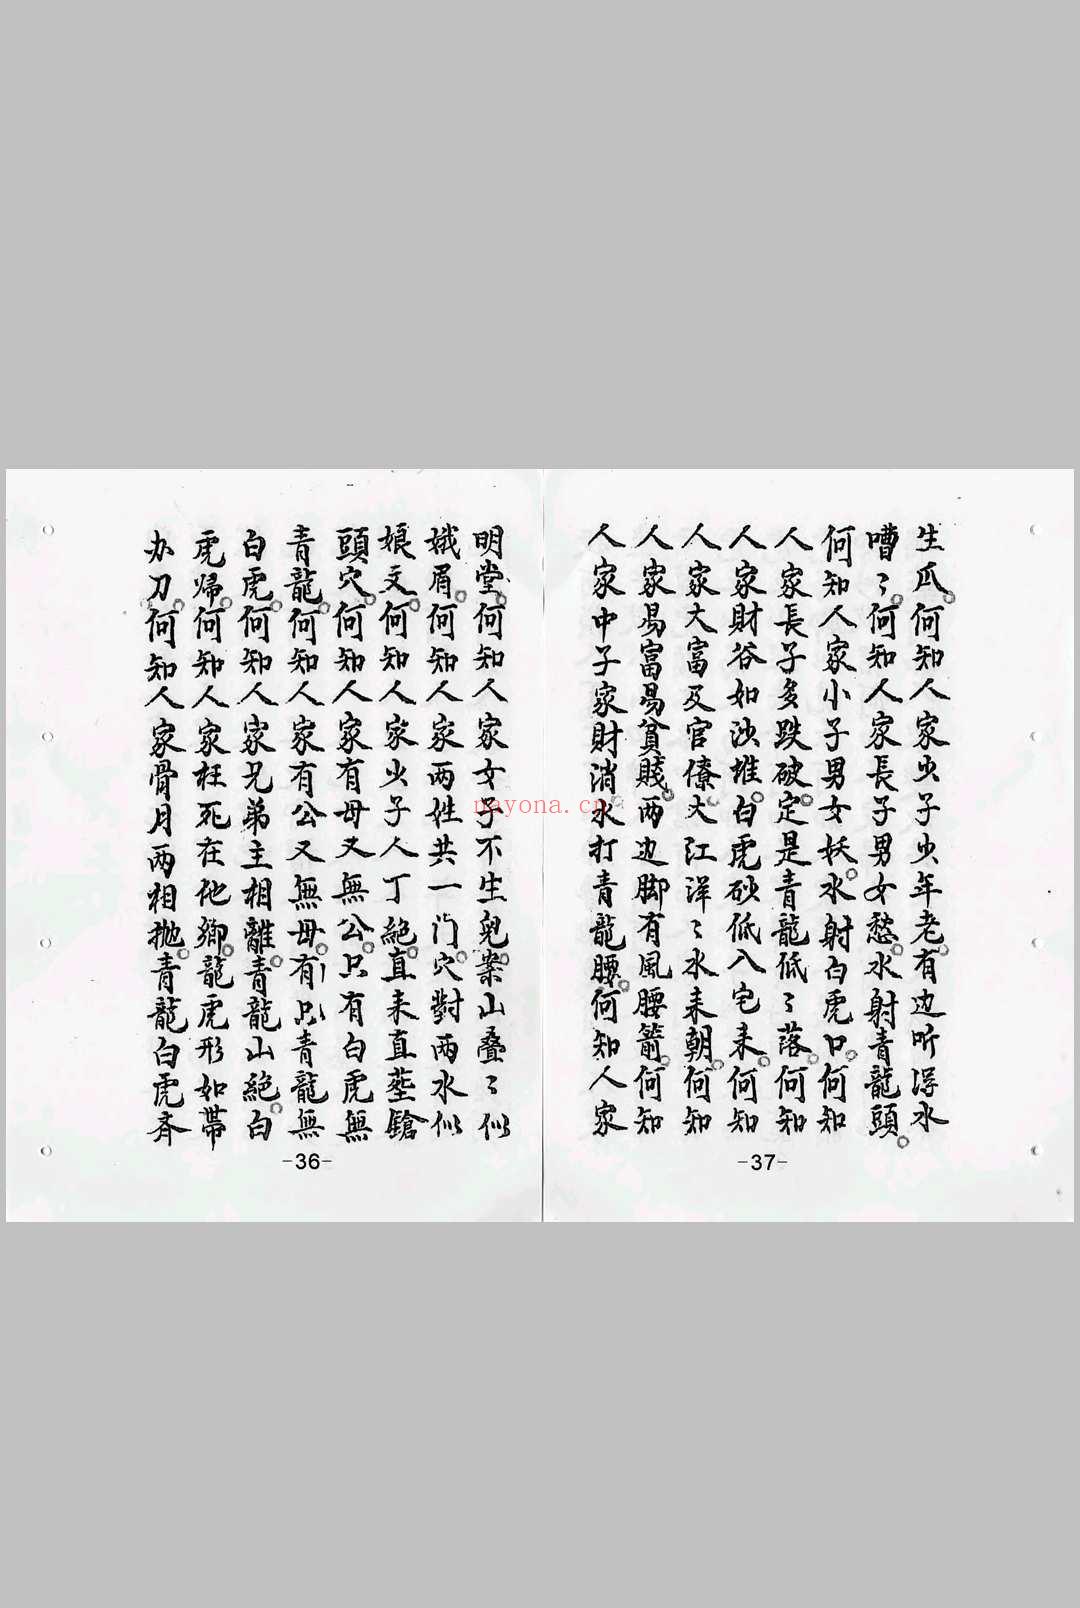 明堂。何知人家女子不生兒。案山叠〻似
娥眉。何知人家两姓共一门。穴對两水似
娘文。何知人家火子人丁絕。直来直塟鎗
頭穴。何知人家有母又無公。只有白虎無
青龍。何知人家有公又無母。有只青龍無
白虎。何知人家兄弟主相離。青龍山絕。白
虎帰。何知人家枉死在他鄉。龍虎形如帶
办刀。何知人家骨月两相抛。青龍白虎斉
-36-
生瓜。何知人家虫子虫年老。有边听淂水
嘈〻。何知人家長子男女愁。水射青龍頭。
何知人家小子男女妖。水射白虎口。何知
人家長子多跌破。定是青龍低〻落。何知
人家財谷如沙堆。白虎砂低八宅来。何知
人家大富及官僚。大江洋〻水来朝。何知
人家易富易貧賤。两边脚有風腰箭。何知
人家中子家財消。水打青龍腰。何知人家
-37-
nayona.cn